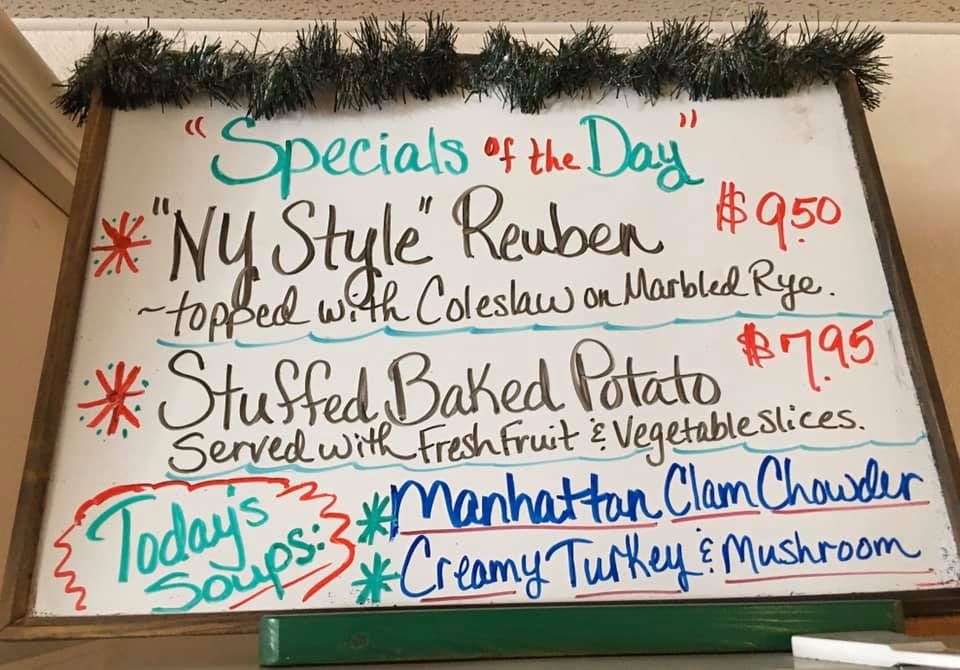 "Specials of the Day"
"NY Style" Reuben $9.50
~topped with Coleslaw on Marbled Rye.
Stuffed Baked Potato $7.95
Served with Fresh Fruit & Vegetable Slices.
Today's Soups:
* Manhattan Clam Chowder
* Creamy Turkey & Mushroom